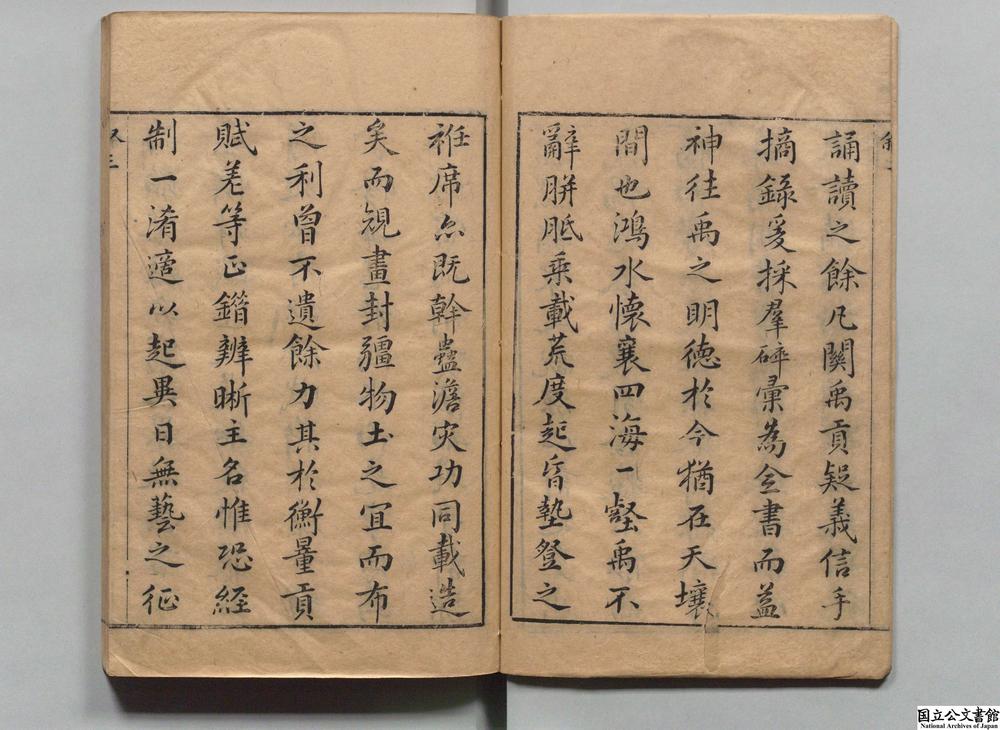 誦讀之餘凡關禹貢疑義信手
摘錄爰採羣碎彚為全書而益
神往禹之明德於今猶在天壤
間也鴻水懷襄四海一壑禹不
辭胼胝乘載荒度起昏墊登之
袵席亦既幹蠱澹灾功同載造
矣而規畫封疆物土之宜而布
之利曾不遺餘力其於衡量貢
賦差等正錯辨晰主名惟恐經
制一淆適以起異日無藝之征
国立公文書館
National Archives of Japan